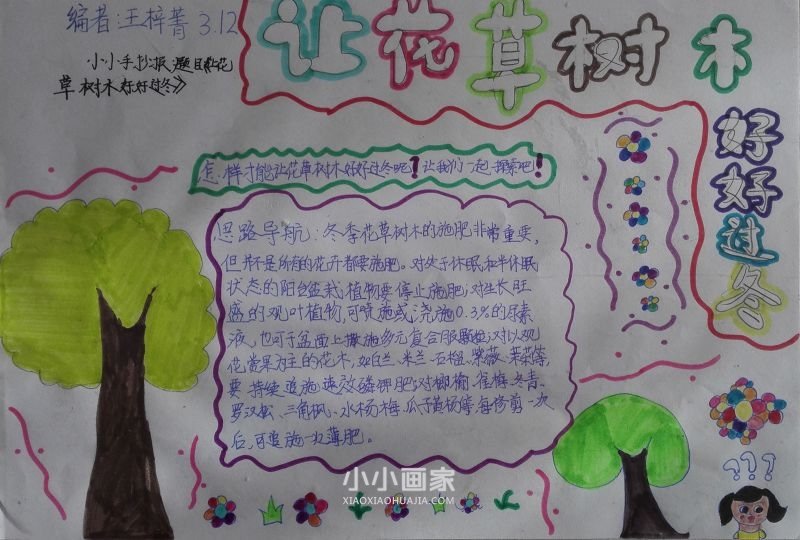 编者:王梓菁 3.12
小小手抄报,题目《让花
草树木好好过冬》
让花草树木
好好过冬
怎样才能让花草树木好好过冬呢?让我们一起探索吧!
思路导航:冬季花草树木的施肥非常重要,
但并不是所有的花卉都要施肥。对处于休眠和半休眠
状态的阳台盆栽植物要停止施肥;对生长旺
盛的观叶植物,可喷施或浇施0.3%的尿素
液,也可于盆面上撒施多元复合肥颗粒;对以观
花赏果为主的花木,如白兰、米兰、石榴、紫薇、茉莉等,
要持续追施速效磷钾肥;对榔榆、雀梅、冬青、
罗汉松、三角枫、水杨梅、瓜子黄杨等,每修剪一次
后,可追施一次薄肥。
???
小小画家
XIAOXIAOHUAJIA.COM